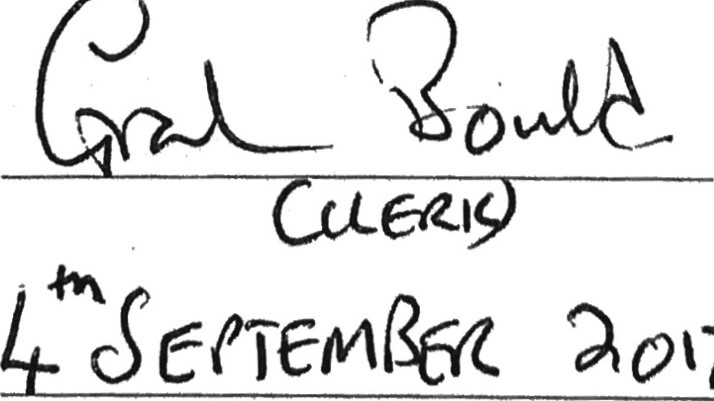 Bould
(CLERK)
4th SEPTEMBER 201